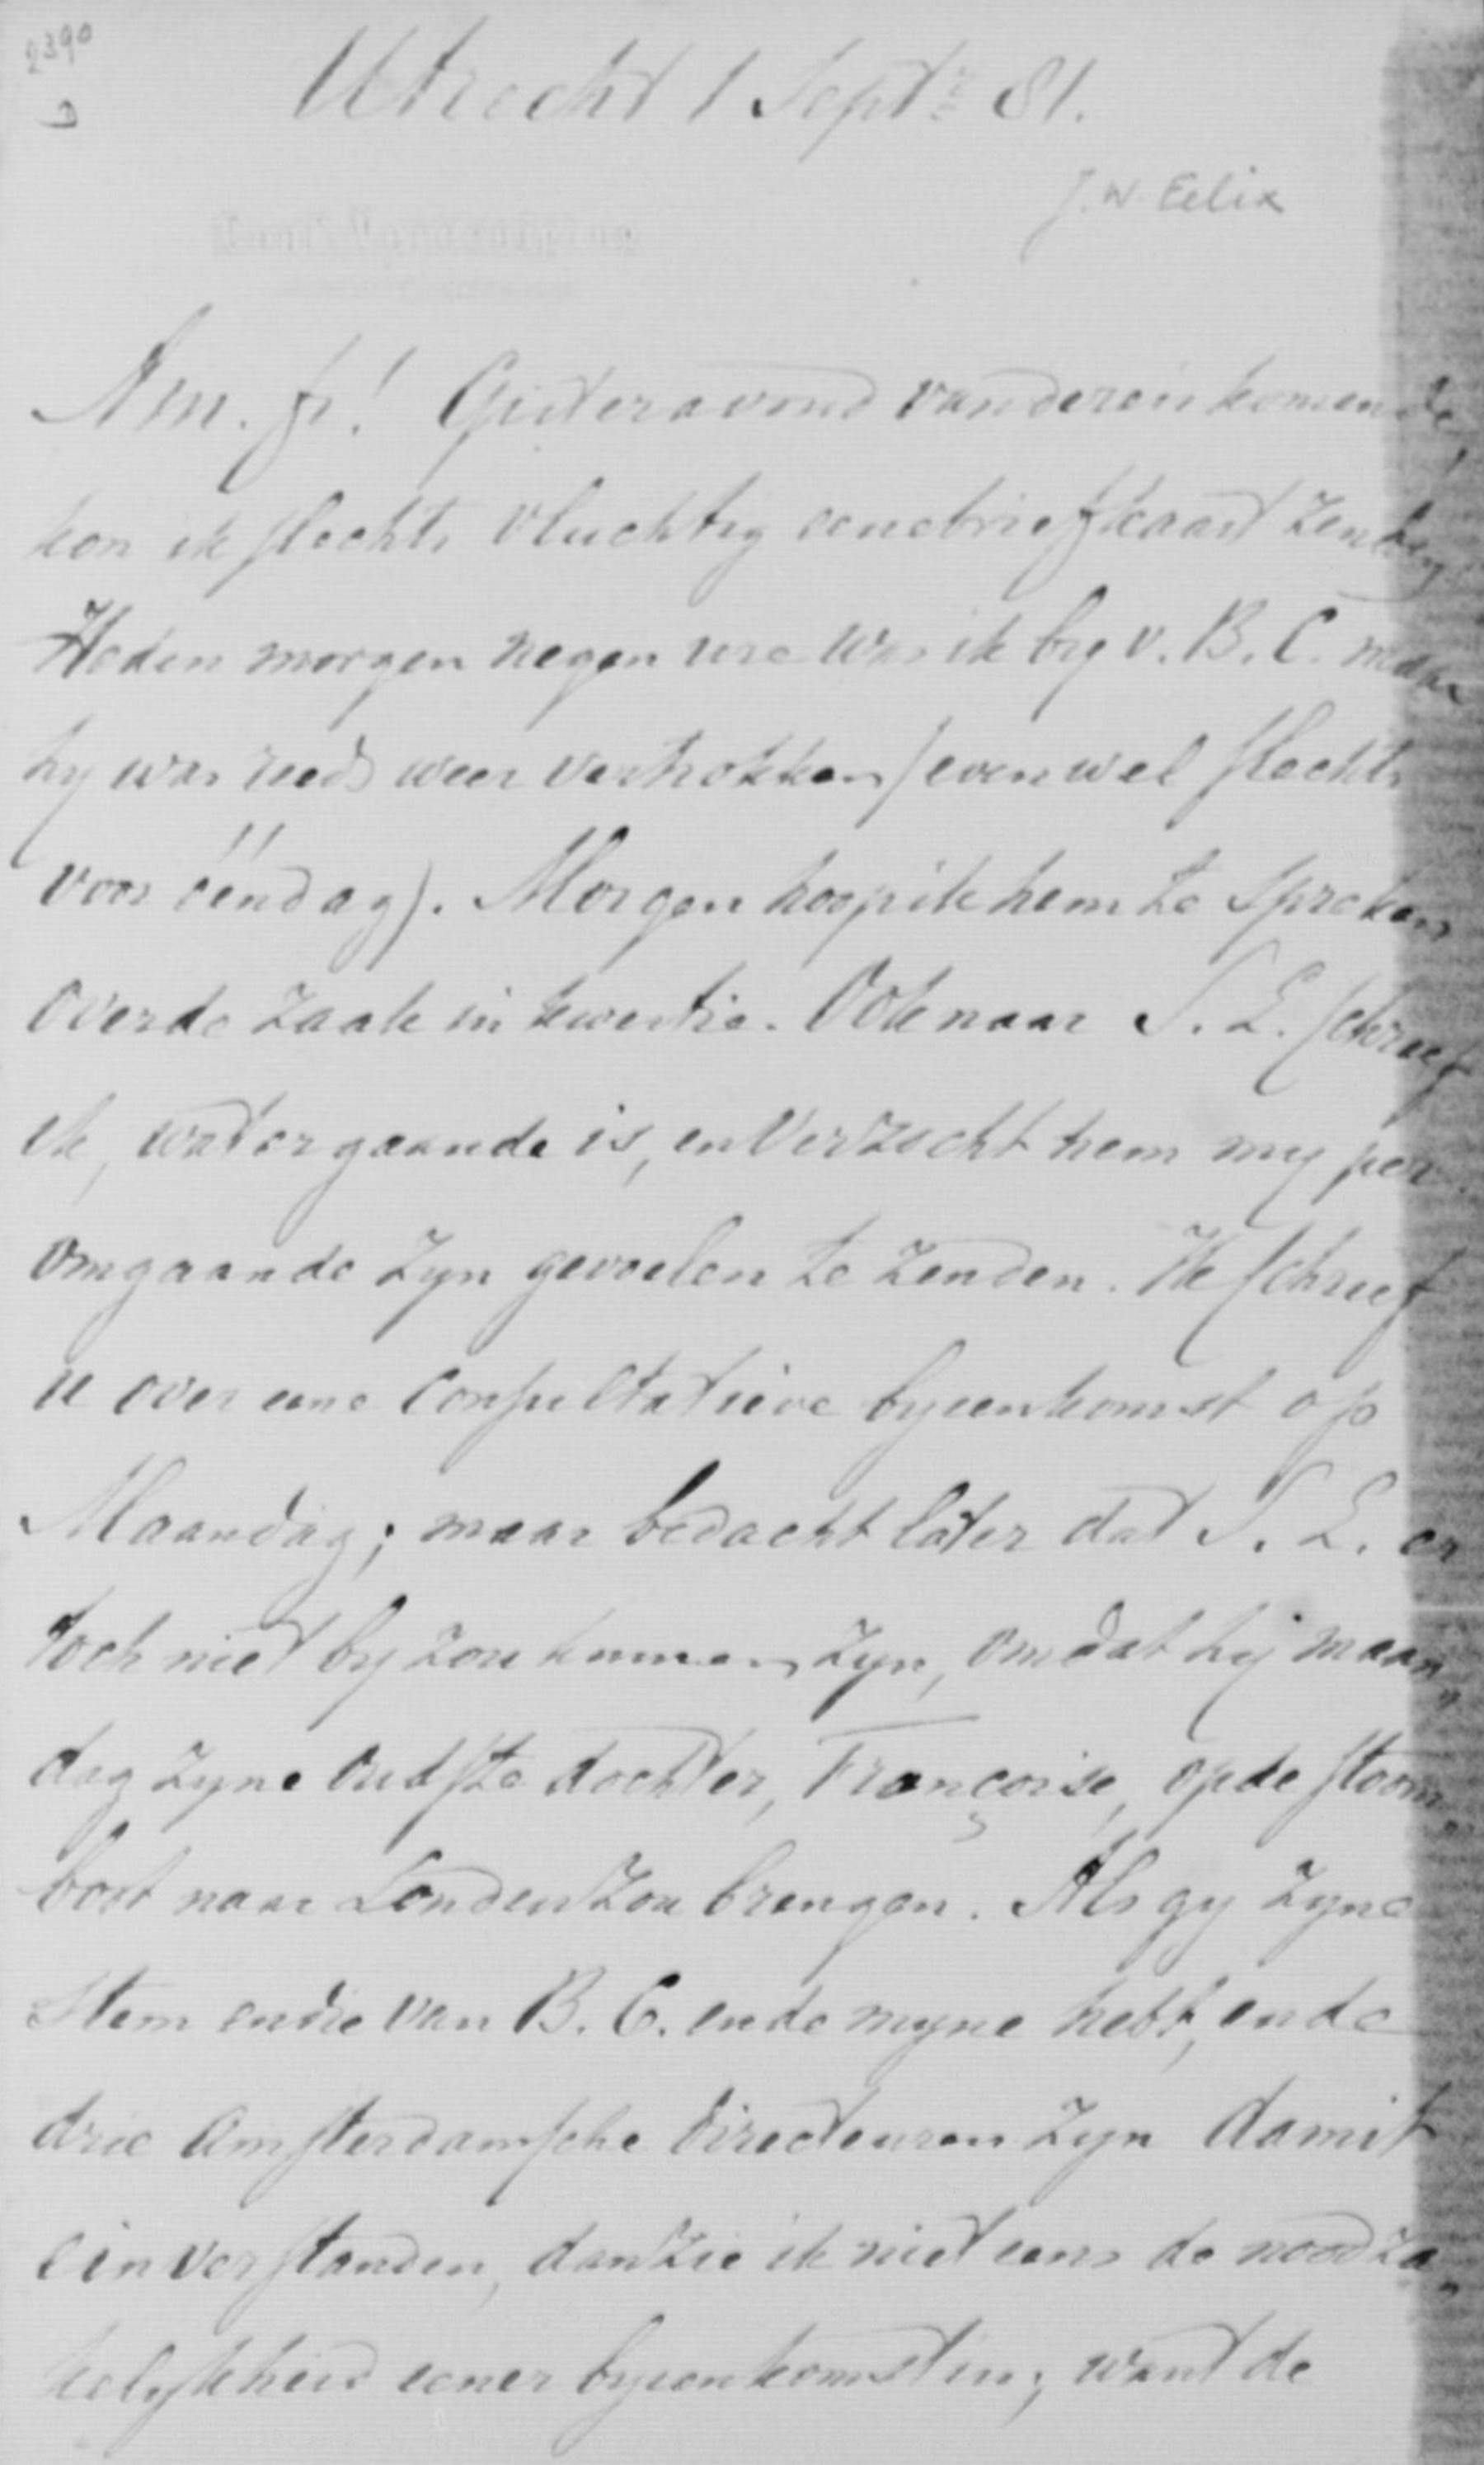 2390
D
Utrecht 1 Septr 81.
J. W. Felix
Am. fr! Gisteravond van de reis komende,
kon ik slechts vluchtig eene briefkaart zenden.
Heden morgen negen ure was ik by v. B. C. maar
hy was reeds weer vertrokken (evenwel slechts
voor één dag). Morgen hoop ik hem te spreken
over de zaak in kwestie. Ook naar S. L. schreef
ik, wat er gaande is, en verzocht hem my per
omgaande zyn gevoelen te zenden. Ik schreef
u over eene consultatieve byeenkomst op
Maandag; maar bedacht later dat S. L. er
toch niet by zou kunnen zyn, omdat hij maan„
dag zyne oudste dochter, Françoise, op de stoom„
boot naar Londen zou brengen. Als gy zyne
stem en die van B. C. en de myne hebt, en de
drie Amsterdamsche directeuren zyn damit
einverstanden, dan zie ik niet eens de noodza„
kelykheid eener byeenkomst in; want de